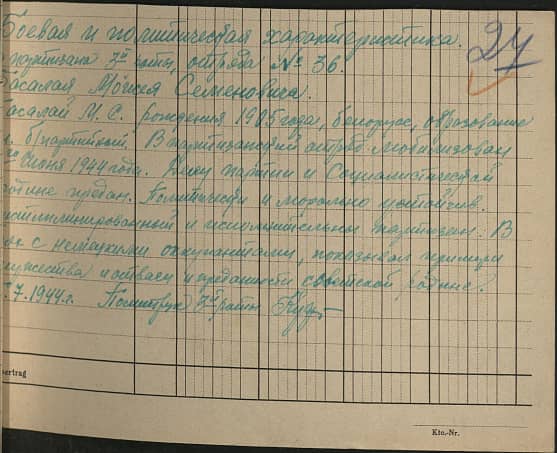 Боевая и политическая характеристика.
партизана 3й роты, отряда № 36.
27
Басалая Моисея Семеновича.
Басалай М. С. рождения 1905 года, белорус, образование
б/партийный. В партизанский отряд мобилизован
июня 1944 года. Делу партии и Социалистической
родине предан. Политически и морально устойчив.
исциплинированный и исполнительный партизан. В
с немецкими оккупантами, показывал примеры
мужества и отваги и преданности советской родине.
.7.1944 г. Политрук 3й роты
ertrag
Kto.-Nr.